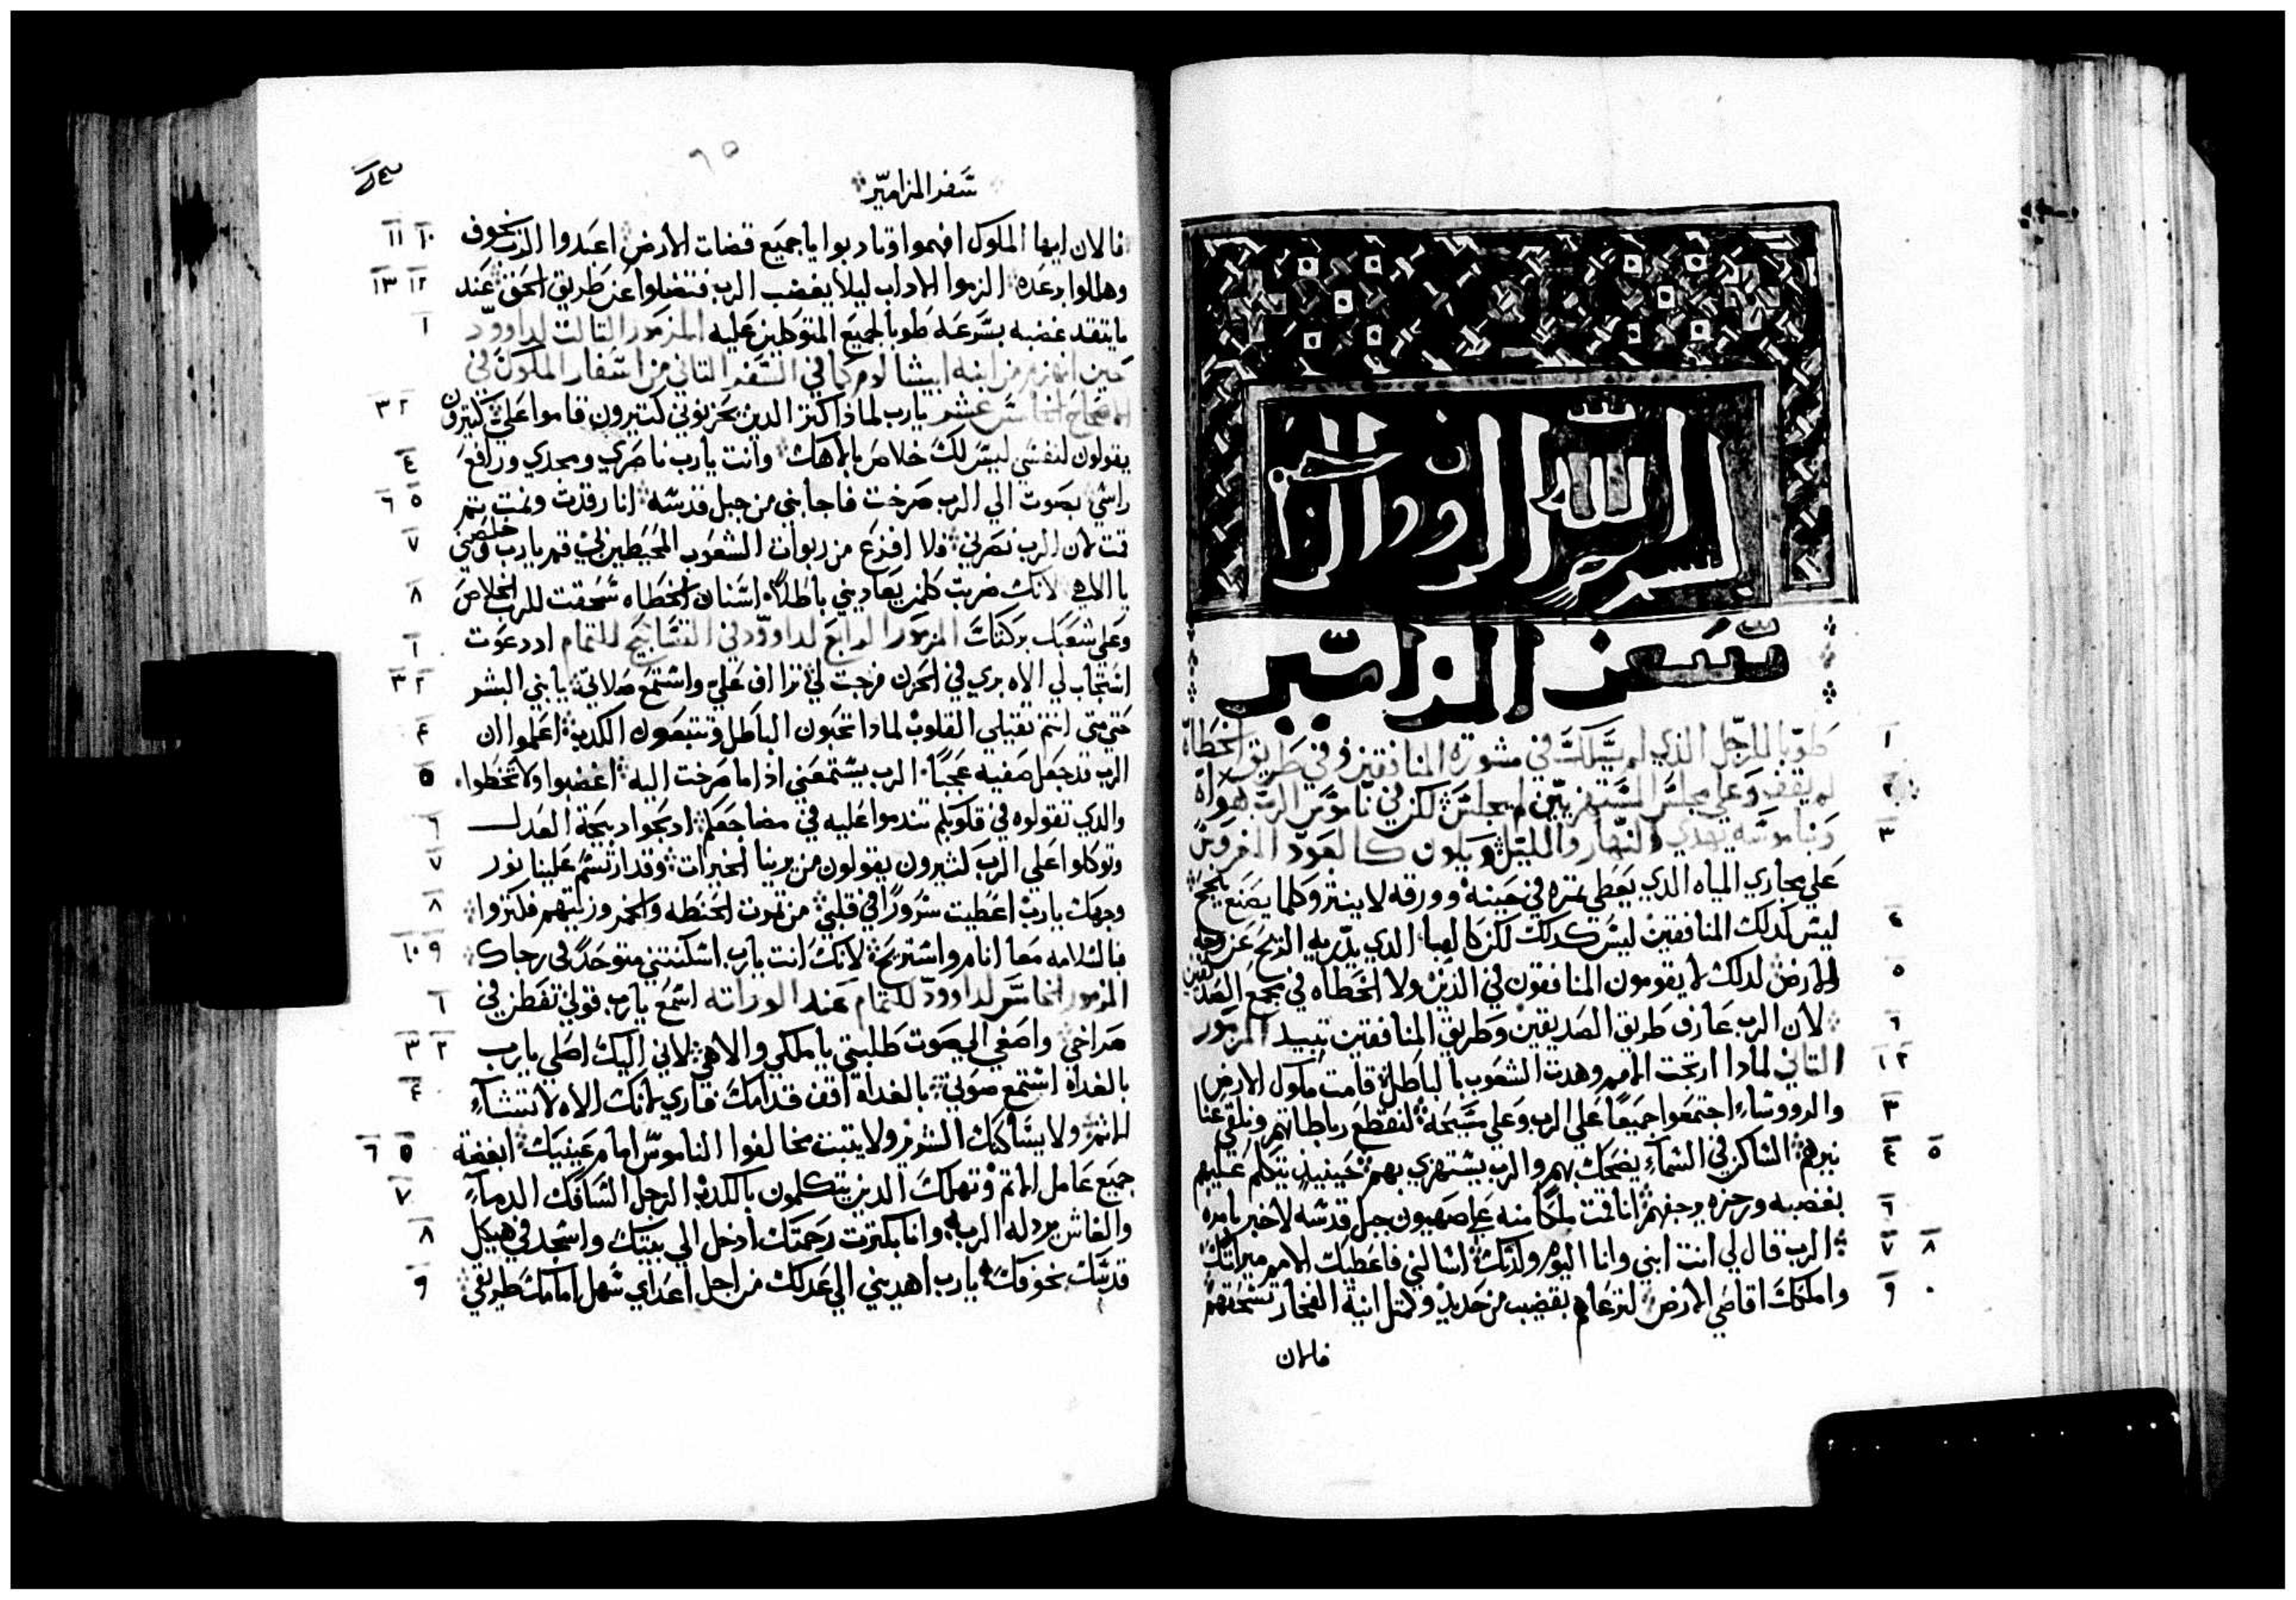 بسم الله الرحمن الرحيم
سفر المزامير
طوبا للرجل الذي لم يسلك في مشورة المنافقين وفي طريق الخطاه
لم يقف وعلي مجلس المستهزيين لم يجلس لكن في ناموس الرب هواه
وبناموسه يهدي النهار والليل ويكون كالعود المغروس
علي مجاري المياه الذي يعطي تمره في حينه وورقه لا ينتر وكلما يصنع ينجح
ليس كدلك المنافقين ليس كدلك لكن كالهبا الذي يدريه الريح عن وجه
الارض لدلك لا يقومون المنافقون في الدين ولا الخطاه في مجمع الصديقين
لان الرب عارف طريق الصديقين وطريق المنافقين تبيد المزمور
التاني لمادا ارتجت الامم وهدت الشعوب بالباطل قامت ملوك الارض
والرووساء اجتمعوا جميعا علي الرب وعلي مسيحه لنقطع رباطاتهم ونلقي عنا
نيرهم الساكن في السماء يضحك بهم والرب يستهزي بهم حينيد يتكلم عليهم
بغضبه ورجزه يرجفهم انا قمت ملكا منه علي صهيون جبل قدسه لاخبر بامره
الرب قال لي انت ابني وانا اليوم ولدتك اسالني فاعطيك الامم ميراتك
واملكك اقاصي الارض لترعاهم بقضيب من حديد وكمتل انية الفخار تسحقهم
فالان
سفر المزامير
فالان ايها الملوك افهموا وتادبوا يا جميع قضات الارض اعبدوا الرب بخوف
وهللوا برعده الزموا الاداب ليلا يغضب الرب فتضلوا عن طريق الحق عند
ما يتقد غضبه بسرعه طوبا لجميع المتوكلين عليه المزمور التالت لداوود
حين انهزم من ابنه ابيشالوم كما في السفر التاني من اسفار الملوك في
عشر يارب لمادا كتر الدين يحزنوني كتيرون قاموا علي كتيرون
يقولون لنفسي ليس لك خلاص بالاهك وانت يارب ناصري ومجدي ورافع
راسي بصوت الي الرب صرخت فاجابني من جبل قدسه انا رقدت ونمت تم
قمت لان الرب نصرني فلا افزع من ربوات الشعوب المحيطين بي قم يارب خلصني
يا الاهي لانك ضربت كلمن يعاديني باطلا اسنان الخطاه سحقت للرب الخلاص
وعلي شعبك بركتك المزمور الرابع لداوود في التسابيح للتمام اد دعوت
استجاب لي الاه بري في الحزن فرجت لي تراف علي واستمع صلاتي يا بني البشر
حتي متي انتم تقيلي القلوب لمادا تحبون الباطل وتتبعون الكدب اعلموا ان
الرب قد جعل صفيه عجبا الرب يستمعني اذا ما صرخت اليه اغضبوا ولا تخطوا
والدي تقولوه في قلوبكم تندموا عليه في مضاجعكم ادبحوا دبيحة العدل
وتوكلوا علي الرب كتيرون يقولون من يرينا الخيرات وقد ارتسم علينا نور
وجهك يارب اعطيت سرورا في قلبي من تمرت الحنطه والخمر وزيتهم فكتروا
فالسلامه معا انام واستريح لانك انت يارب اسكنتني متوحدا في رجاك
المزمور الخامس لداوود للتمام عند الوراته اسمع يارب قولي تفطن في
صراخي واصغي الي صوت طلبتي يا ملكي والاهي لاني اليك اصلي يارب
بالغداه استمع صوتي بالغداه اقف قدامك فاري لانك الاه لا تشاء
الاتم ولا يساكنك الشرير ولا يتبت مخالفوا الناموس امام عينيك ابغضة
جميع عامل الاتم وتهلك الدين يتكلمون بالكدب الرجل السافك الدماء
والغاش يردله الرب وانا بكترت رحمتك ادخل الي بيتك واسجد في هيكل
قدسك بخوفك يارب اهديني الي عدلك من اجل اعداي سهل امامك طريقي